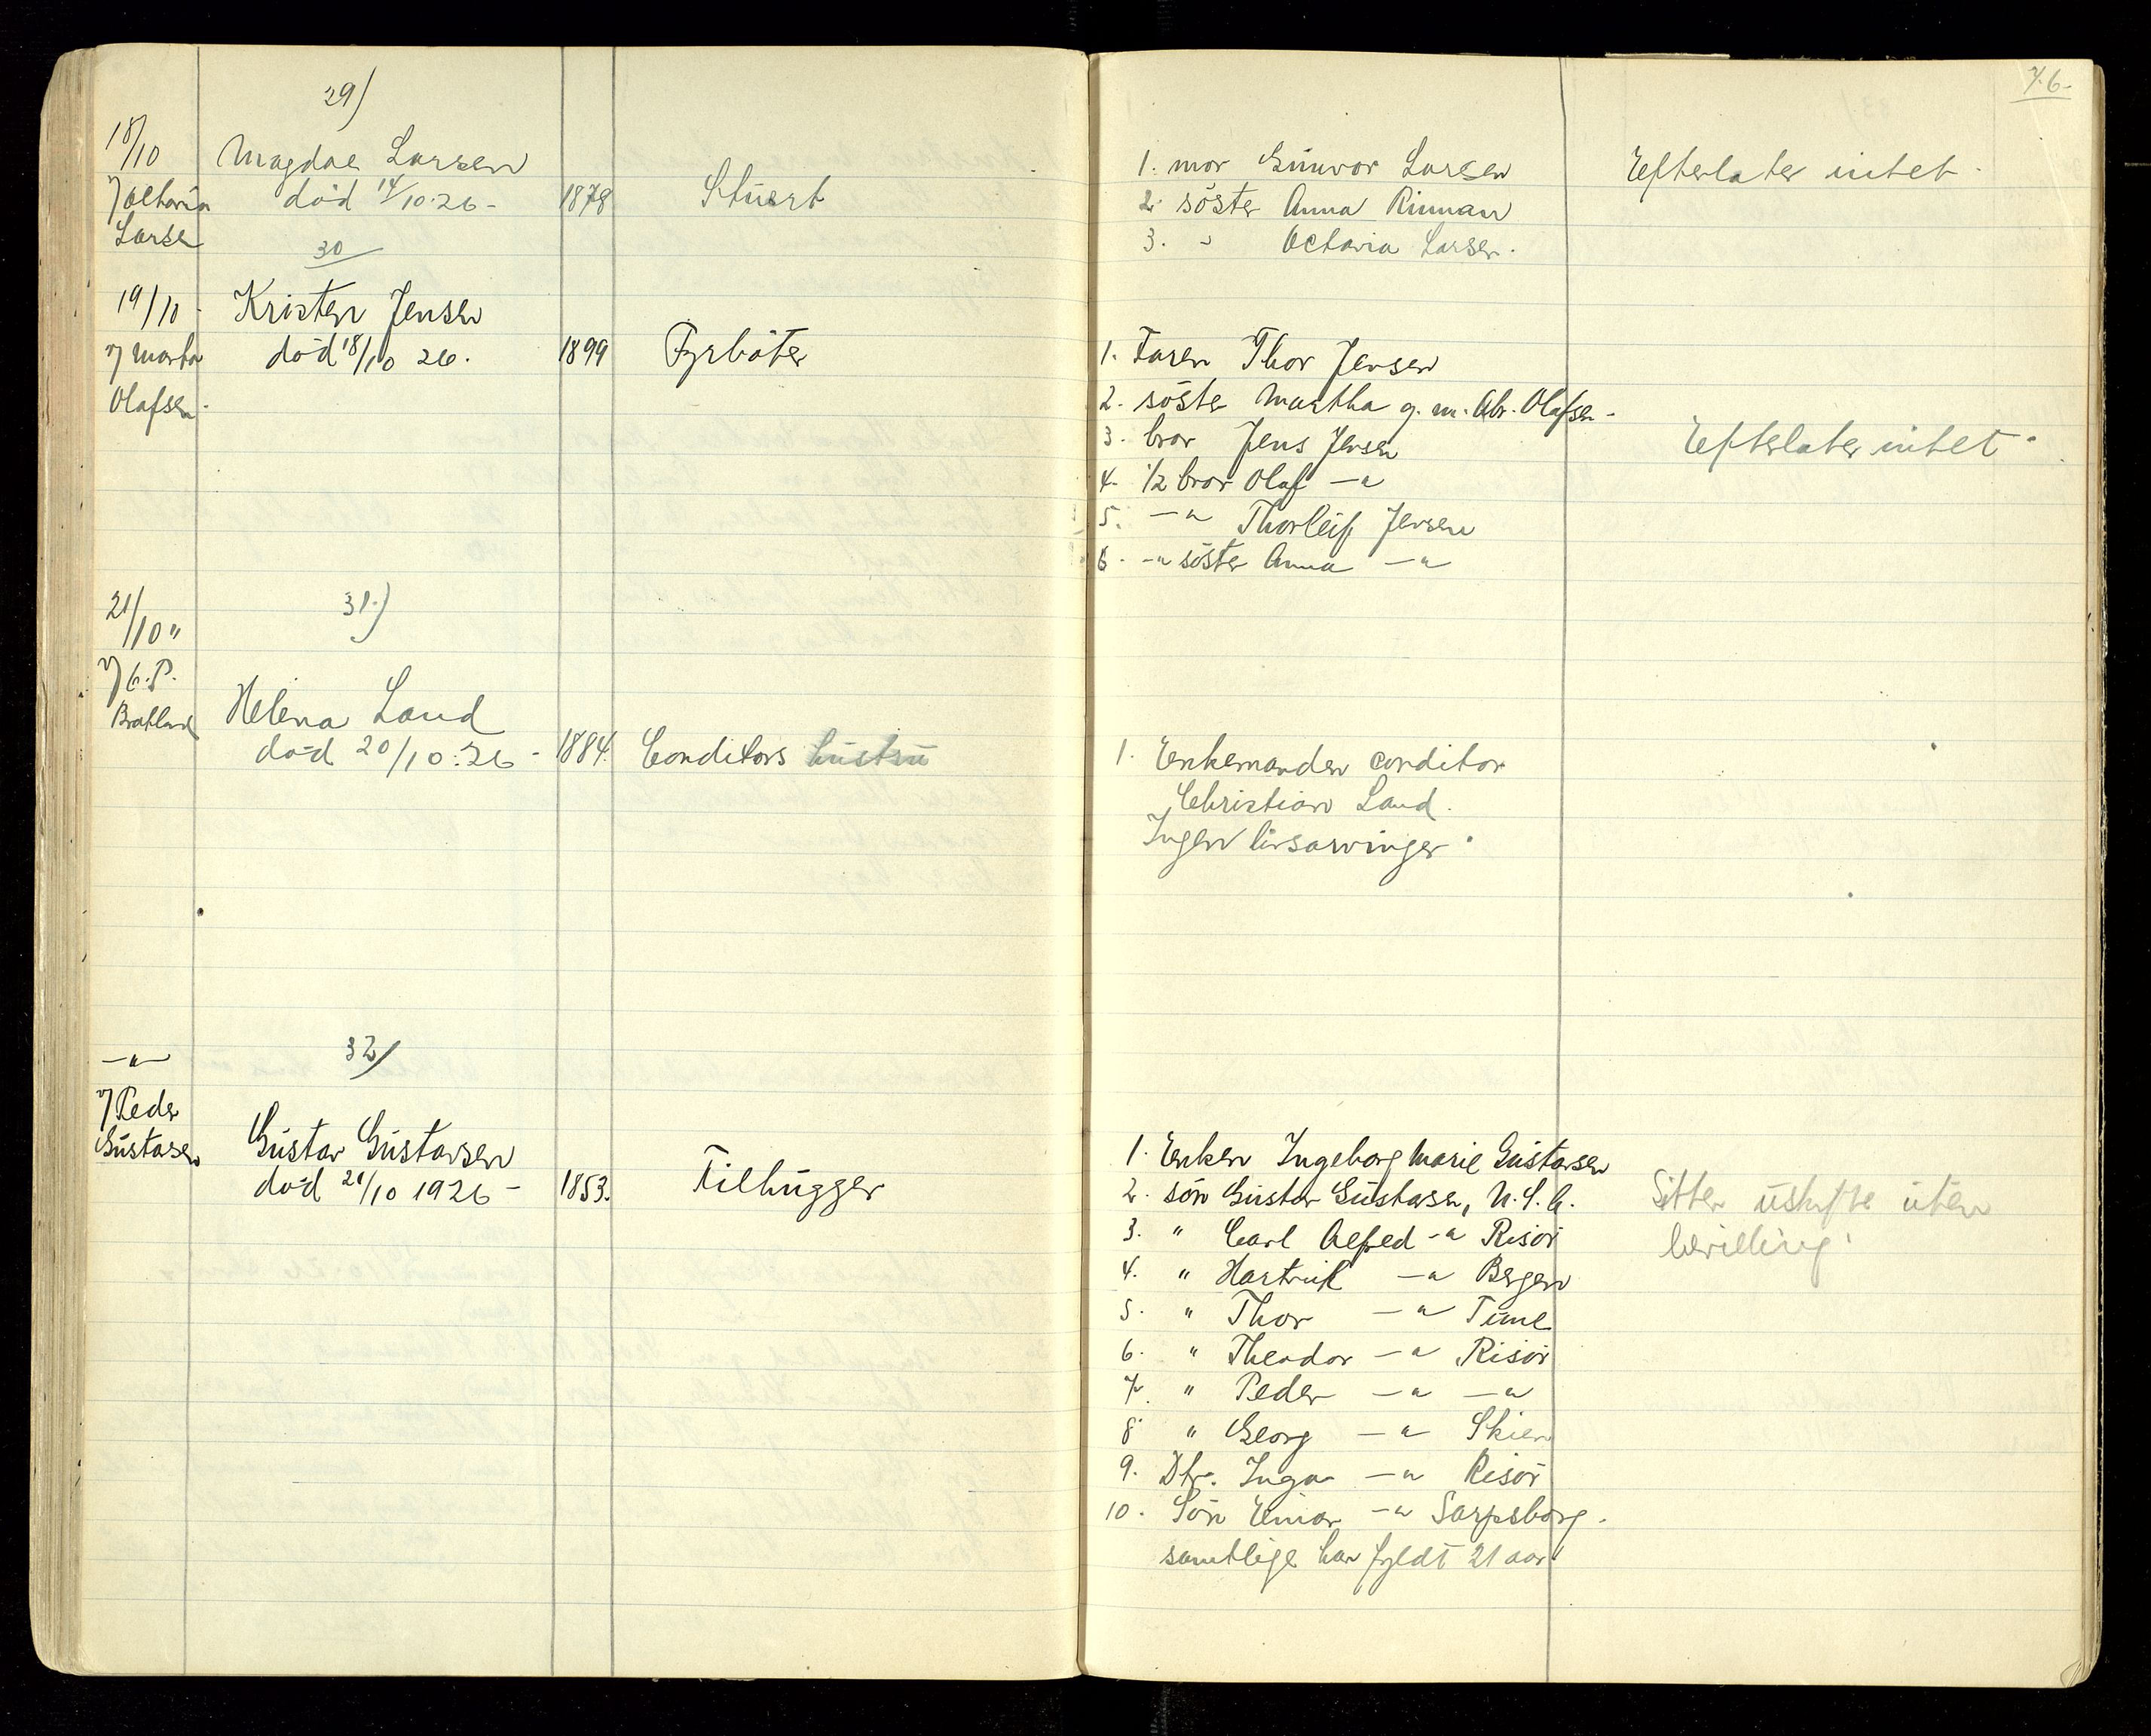 76.
29)
18/10
v/ Octavia
Larsen
Magdae Larsen
død 14/10.26-
1878
Stuert
1. mor Gunvor Larsen
2. søster Anna Rinnan
3. " Octavia Larsen.
Efterlater intet.
30
19/10-
v/ Marta
Olafsen.
Kristen Jensen
død 18/10 26.
1899
Fyrbøter
1. Faren Thor Jensen
2. søster Martha g. m. Abr. Olafsen-
3. bror Jens Jensen
4. 1/2 bror Olaf —"
5. —" Thorleif Jensen
6. —" søster Anna —"
Efterlater intet.
31.)
21/10 "
v/ C. P.
Helena Land
død 20/10.26-
1884.
Conditors hustru
1. Enkemanden conditor
Christian Land.
Ingen livsarvinger.
32/
—"—
v/ Peder
Gustasen
Gustav Gustavsen
død 21/10 1926-
1853.
Tilhugger
1. Enken Ingeborg Marie Gustavsen
2. søn Gustav Gustavsen, U.S.A.
3. " Carl Alfred —" Risør
4. " Hartvik —" Bergen
5. " Thor —"
6. " Theodor —" Risør
7. " Peder —" —"
8. " Georg —" Skien
9. Dtr. Inga —" Risør
10. Søn Einar —" Sarpsborg.
samtlige har fyldt 21 aar.
Sitter uskifte uten
bevilling.